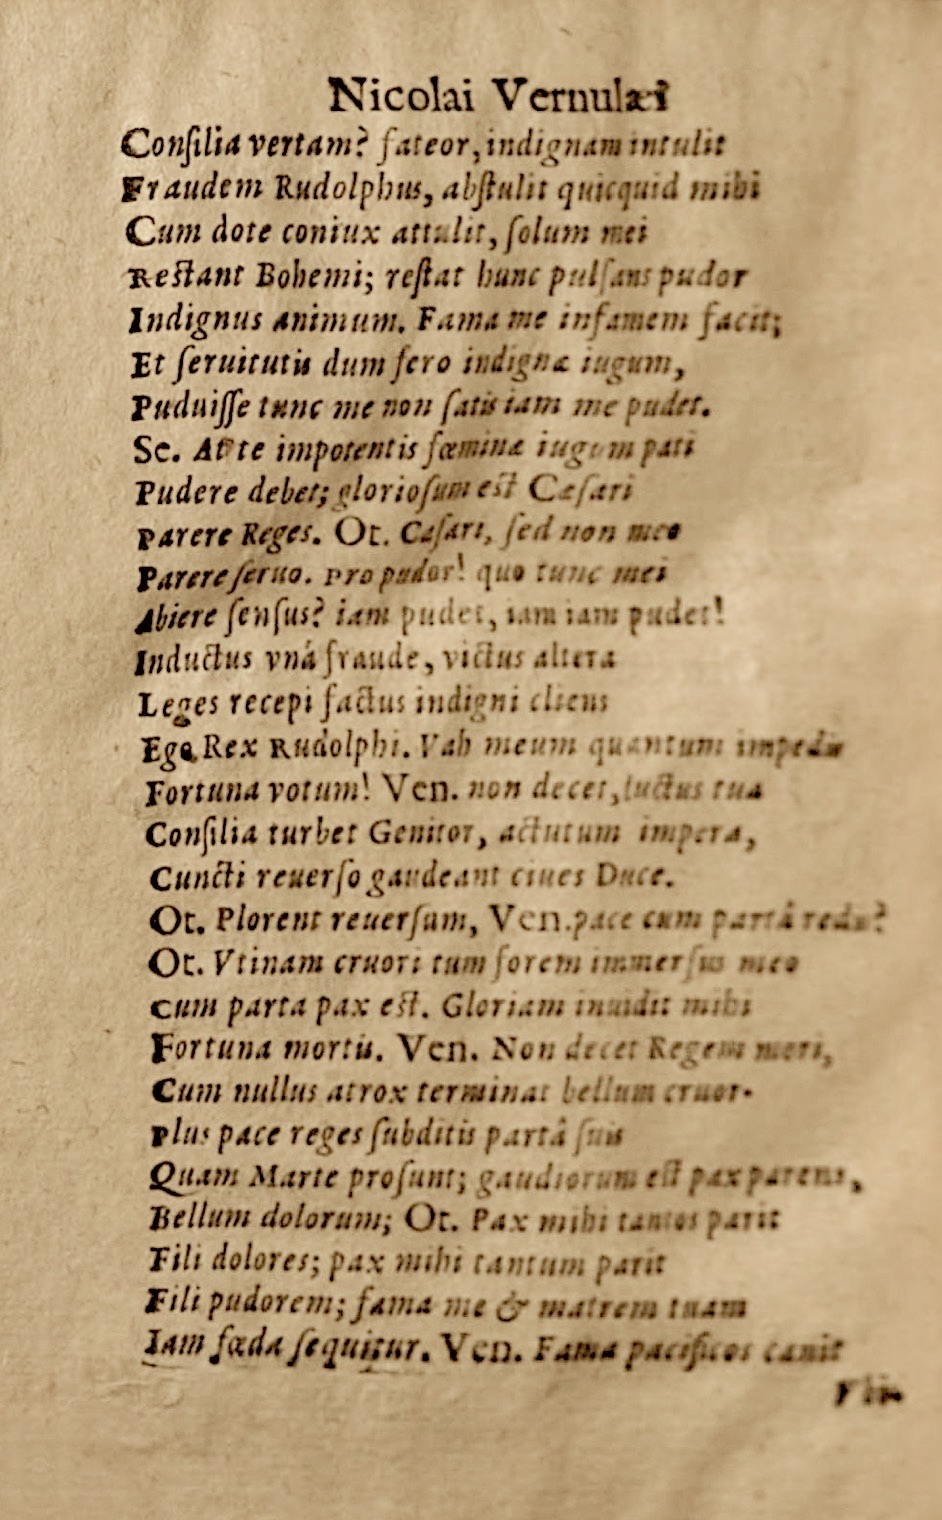 Nicolai Vernulæi
Conſilia vertam? fateor, indignam intulit
Fraudem Rudolphus, abſtulit quicquid mihi
Cum dote coniux attulit, ſolum mei
Reſtant Bohemi; reſtat hunc pulſans pudor
Indignus animum. Fama me infamem facit;
Et ſeruitutis dum fero indignæ iugum,
Puduiſſe tunc me non ſatis iam me pudet.
Sc. At te impotentis fœminæ iugum pati
Pudere debet; glorioſum eſt Cæſari
Parere Reges. Ot. Cæſari, ſed non meo
Parere ſeruo. Pro pudor! quo tunc mei
Abiere ſenſus? iam pudet, iam iam pudet!
Inductus vnâ fraude, victus altera
Leges recepi factus indigni cliens
Ego Rex Rudolphi. Vah meum quantum
Fortuna votum! Ven. non decet, luctus tua
Conſilia turbet Genitor, actutum impera,
Cuncti reuerſo gaudeant ciues Duce.
Ot. Plorent reuerſum, Ven. pace cum partâ redis?
Ot. Vtinam cruori tum forem immerſus meo
Cum parta pax eſt. Gloriam inuidit mihi
Fortuna mortis. Ven. Non decet Regem mori,
Cum nullus atrox terminat bellum cruor.
Plus pace reges ſubditis partâ ſuis
Quam Marte proſunt; gaudiorum eſt pax parens,
Bellum dolorum; Ot. Pax mihi tantos parit
Fili dolores; pax mihi tantum parit
Fili pudorem; fama me & matrem tuam
Iam fœda ſequitur. Ven. Fama pacificos canit